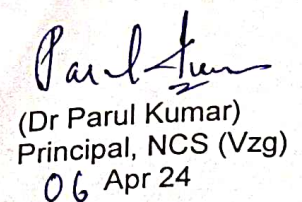 Parul Kumar
(Dr Parul Kumar)
Principal, NCS (Vzg)
06 Apr 24